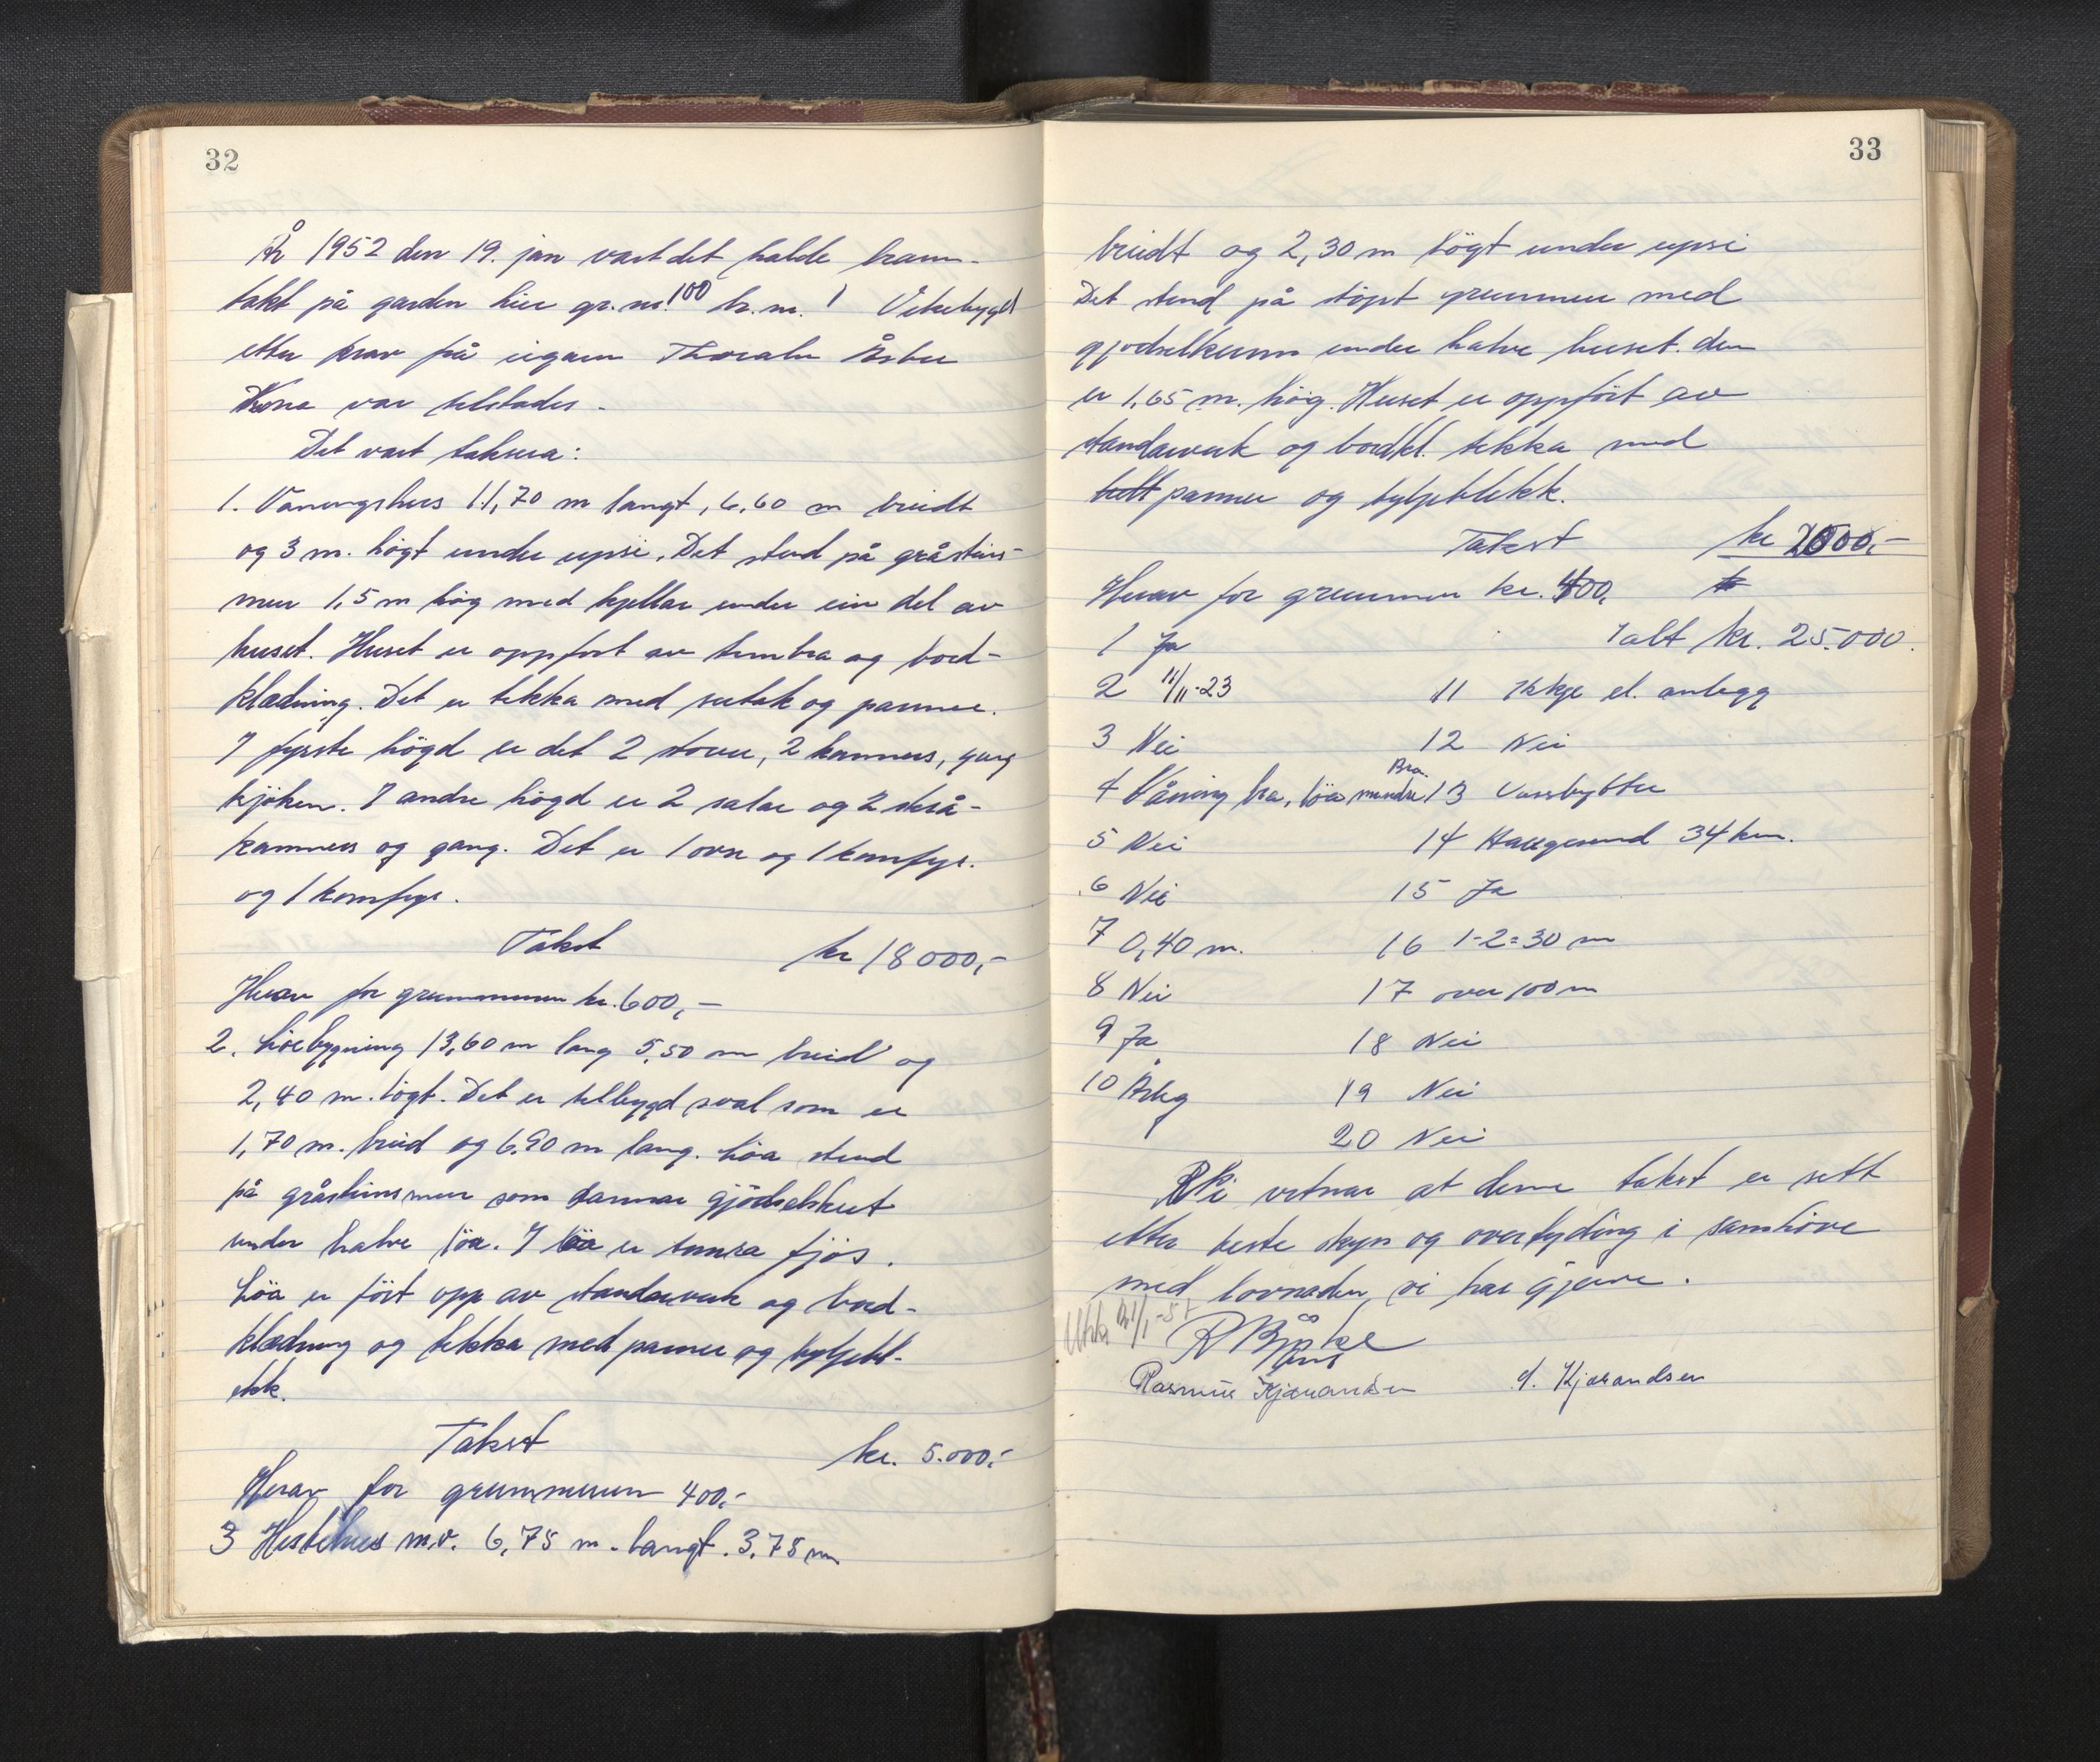 32
År 1952 den 19. jan vart det halde brann-
takst på garden Lier gr.nr. 100 br.nr. 1 Vikebygd
etter krav frå eigaren Thoralv Årbu
Kona var tilstades.
Det vart taksera:
1. Våningshus 11,70 m langt, 6,60 m breidt
og 3 m. högt under upsi. Det stend på gråsteins-
mur 1,5 m hög med kjellar under ein del av
huset. Huset er oppfört av timbra og bord-
klædning. Det er tekka med sutak og pannur.
I fyrste högd er det 2 stovur, 2 kammers, gang
kjöken. I andre högd er 2 salar og 2 skrå-
kammers og gang. Det er 1 ovn og 1 komfyr.
og 1 komfyr.
Takst kr 18000,-
Herav for grunnmuren kr. 600,-
2. Löebygning 13,60 m lang 5,50 m breid og
2,40 m. högt. Det er tilbygd sval som er
1,70 m. breid og 6,90 m lang. Löa stend
på gråsteinsmur som dannar gjödselskut
under halve löa. I löa er innreia fjös.
Löa er fört opp av standarverk og bord-
klædning og tekka med pannur og bylgebl-
ekk.
Takst kr. 5.000,-
Herav for grunnmuren 400,-
3 Hestehus m.v. 6,75 m. langt. 3,75 m
33
breidt og 2,30 m högt under upsi
Det stend på støpt grunnmur med
gjødselkum under halve huset. den
er 1,65 m. hög. Huset er oppfört av
standarverk og bordkl. tekka med
pannur og bylgeblekk.
Takst kr 2000,-
Herav for grunnmur kr. 400,
1 Ja I alt kr. 25.000.
2 11/11-23 11 Ikkje el. anlegg
3 Nei 12 Nei
4 Våning bra, löa mindre Bra. 13 Vassbyttur
5 Nei 14 Haugesund 34 km.
6 Nei 15 Ja
7 0,40 m. 16 1-2=30 m
8 Nei 17 over 100 m
9 Ja 18 Nei
10 Årleg 19 Nei
20 Nei
Vi vitnar at denne takst er sett
etter beste skyn og overtyding i samhöve
med lovnaden vi har gjeve.
R Bjoke
Rasmus Kjærandsen d. Kjærandsen